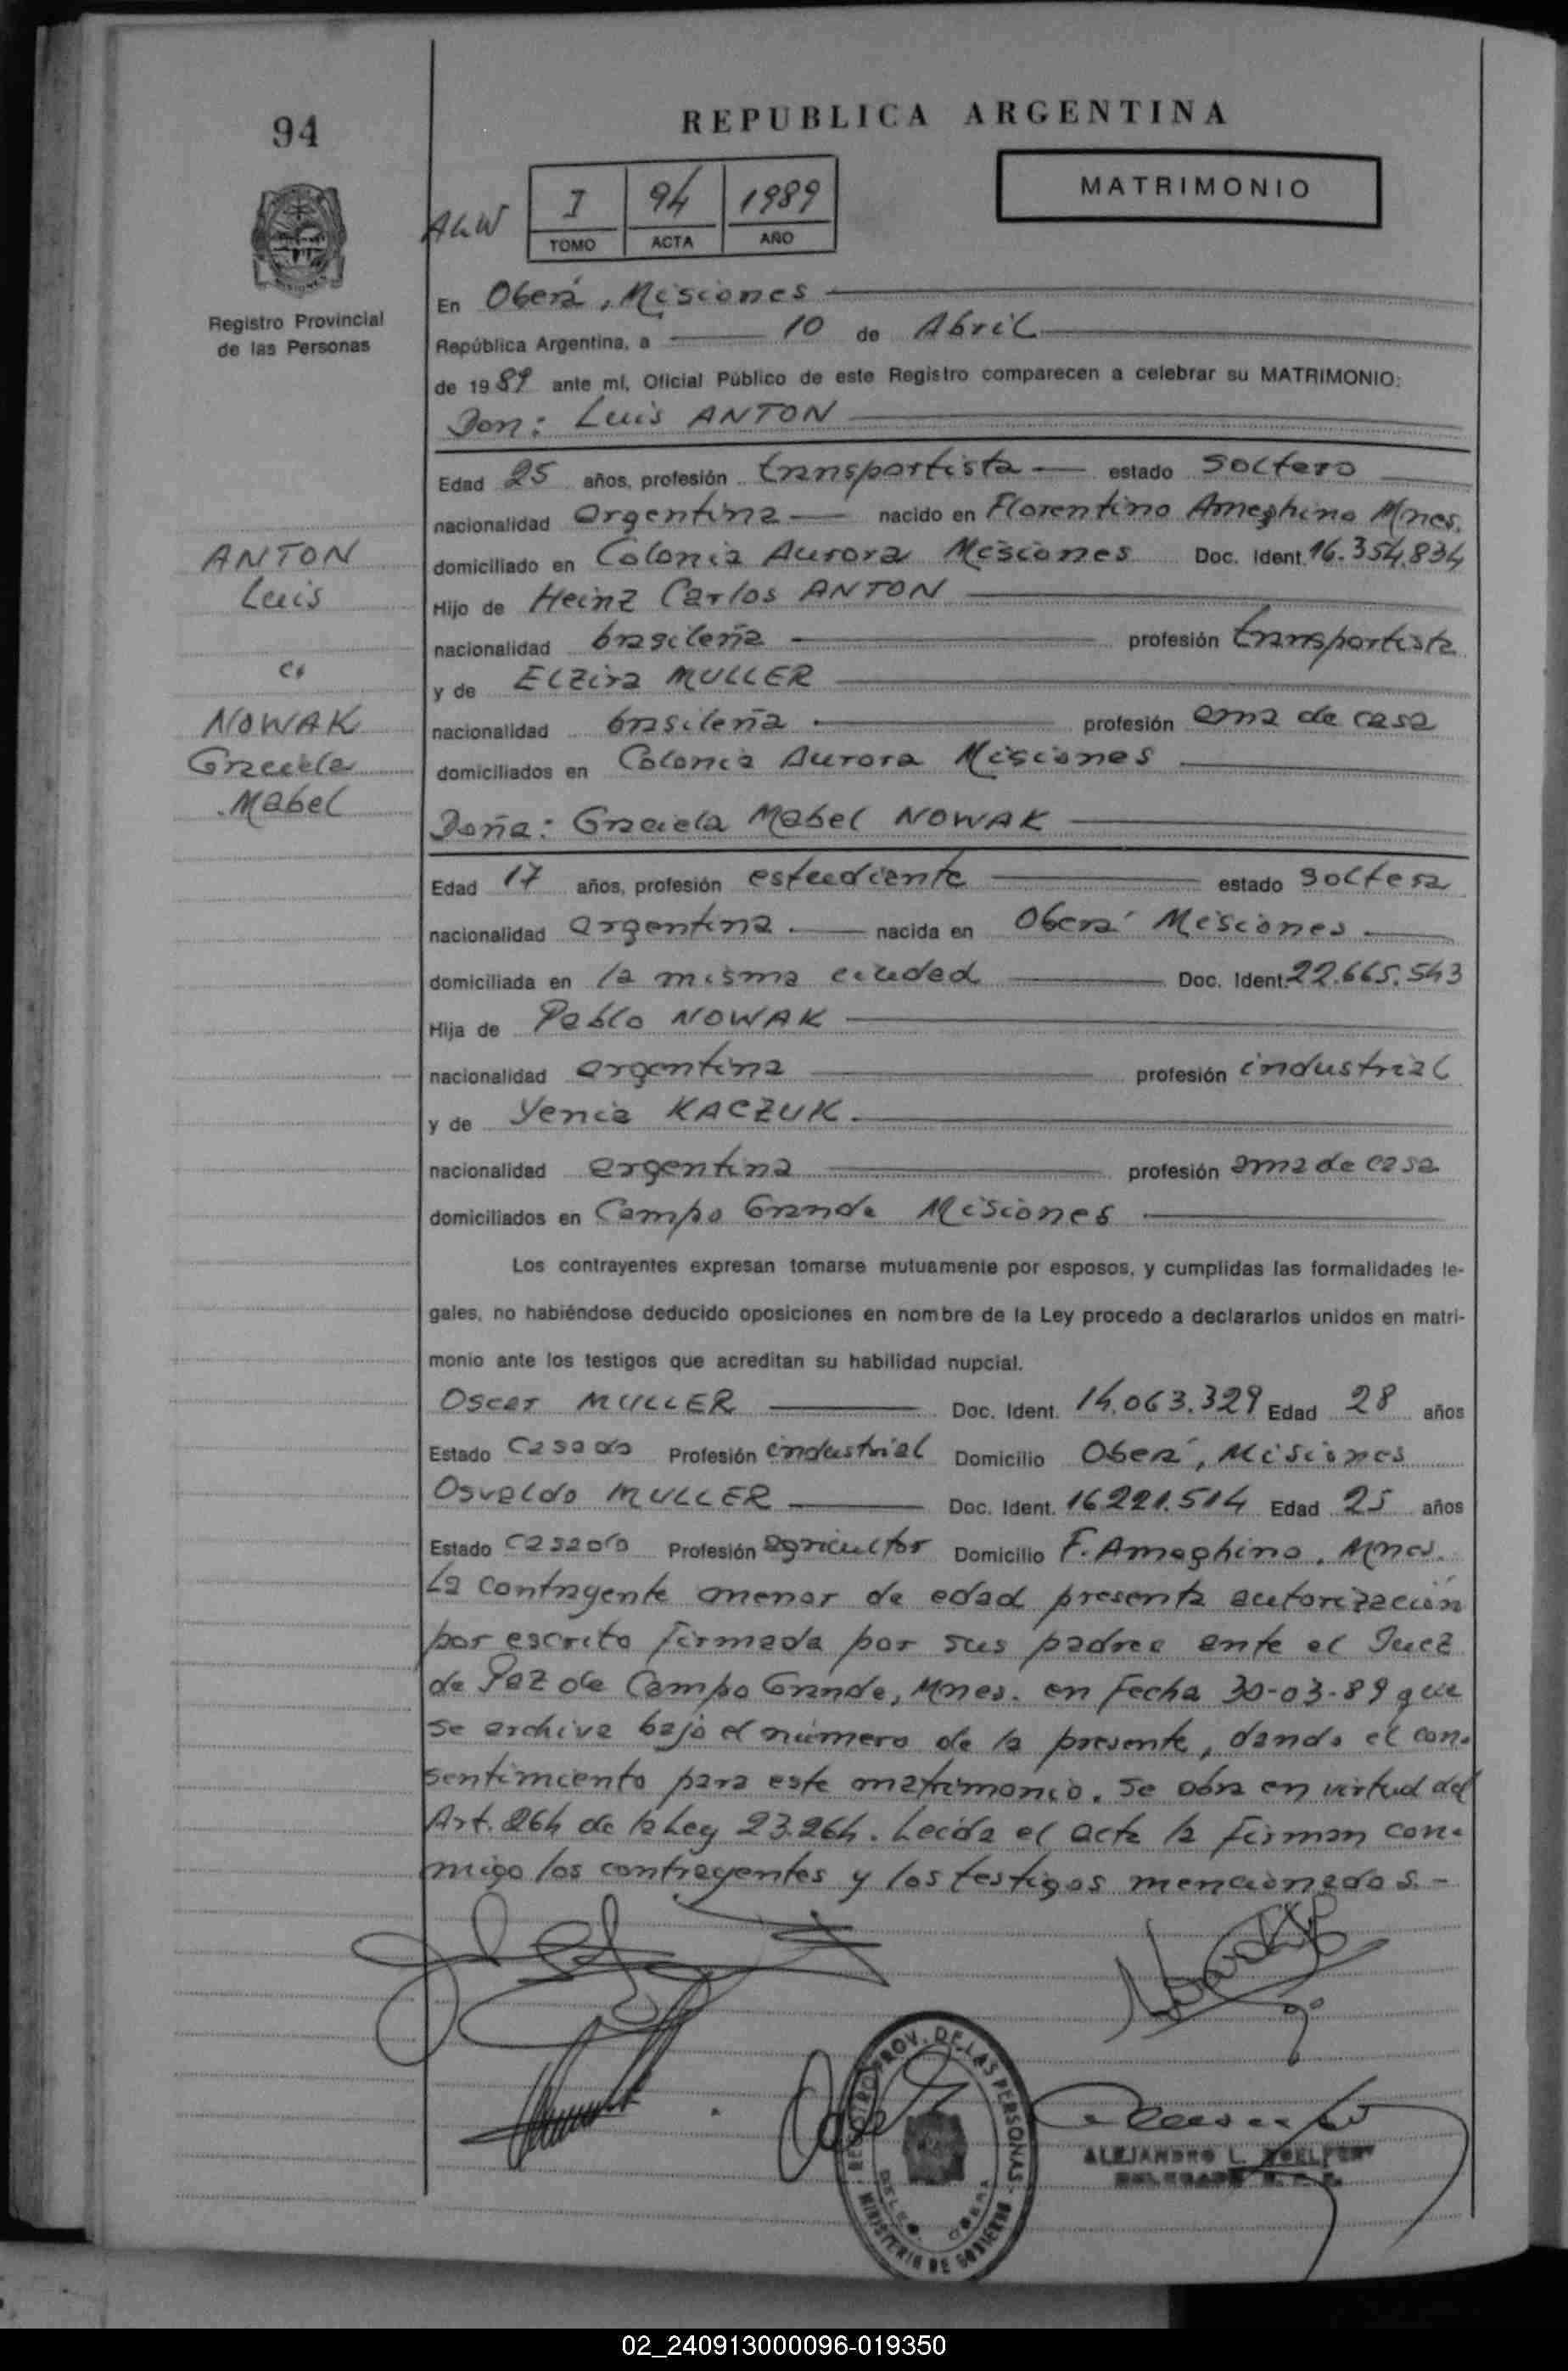 94
REPUBLICA ARGENTINA
MATRIMONIO
I 94 1989
TOMO ACTA AÑO
Registro Provincial
de las Personas
En Oberá, Misiones
República Argentina, a 10 de Abril
de 1989 ante mí, Oficial Público de este Registro comparecen a celebrar su MATRIMONIO:
Don: Luis ANTON
Edad 25 años, profesión transportista estado soltero
nacionalidad argentina nacido en Florentino Ameghino Mnes.
ANTON
Luis
c.
NOWAK
Graciela
Mabel
domiciliado en Colonia Aurora Misiones Doc. Ident. 16.354.834
Hijo de Heinz Carlos ANTON
nacionalidad brasileña profesión transportista
y de Elzira MULLER
nacionalidad brasileña profesión ama de casa
domiciliados en Colonia Aurora Misiones
Doña: Graciela Mabel NOWAK
Edad 17 años, profesión estudiante estado soltera
nacionalidad argentina. nacida en Oberá Misiones.
domiciliada en la misma ciudad Doc. Ident. 22.665.543
Hija de Pablo NOWAK
nacionalidad argentina profesión industrial
y de Yenia KACZUK.
nacionalidad argentina profesión ama de casa
domiciliados en Campo Grande Misiones
Los contrayentes expresan tomarse mutuamente por esposos, y cumplidas las formalidades le-
gales, no habiéndose deducido oposiciones en nombre de la Ley procedo a declararlos unidos en matri-
monio ante los testigos que acreditan su habilidad nupcial.
Oscar MULLER Doc. Ident. 14.063.329 Edad 28 años
Estado casado Profesión industrial Domicilio Oberá, Misiones
Osvaldo MULLER Doc. Ident. 16.221.514 Edad 25 años
Estado casado Profesión agricultor Domicilio F. Ameghino, Mnes.
La contrayente menor de edad presenta autorización
por escrito firmada por sus padres ante el Juez
de Paz de Campo Grande, Mnes. en fecha 30-03-89 que
se archiva bajo el número de la presente, dando el con-
sentimiento para este matrimonio. Se obra en virtud del
Art. 264 de la Ley 23.264. Leída el acta la firman con-
migo los contrayentes y los testigos mencionados.-
REGISTRO PROV. DE LAS PERSONAS
MINISTERIO DE GOBIERNO
ALEJANDRO L.
02_240913000096-019350